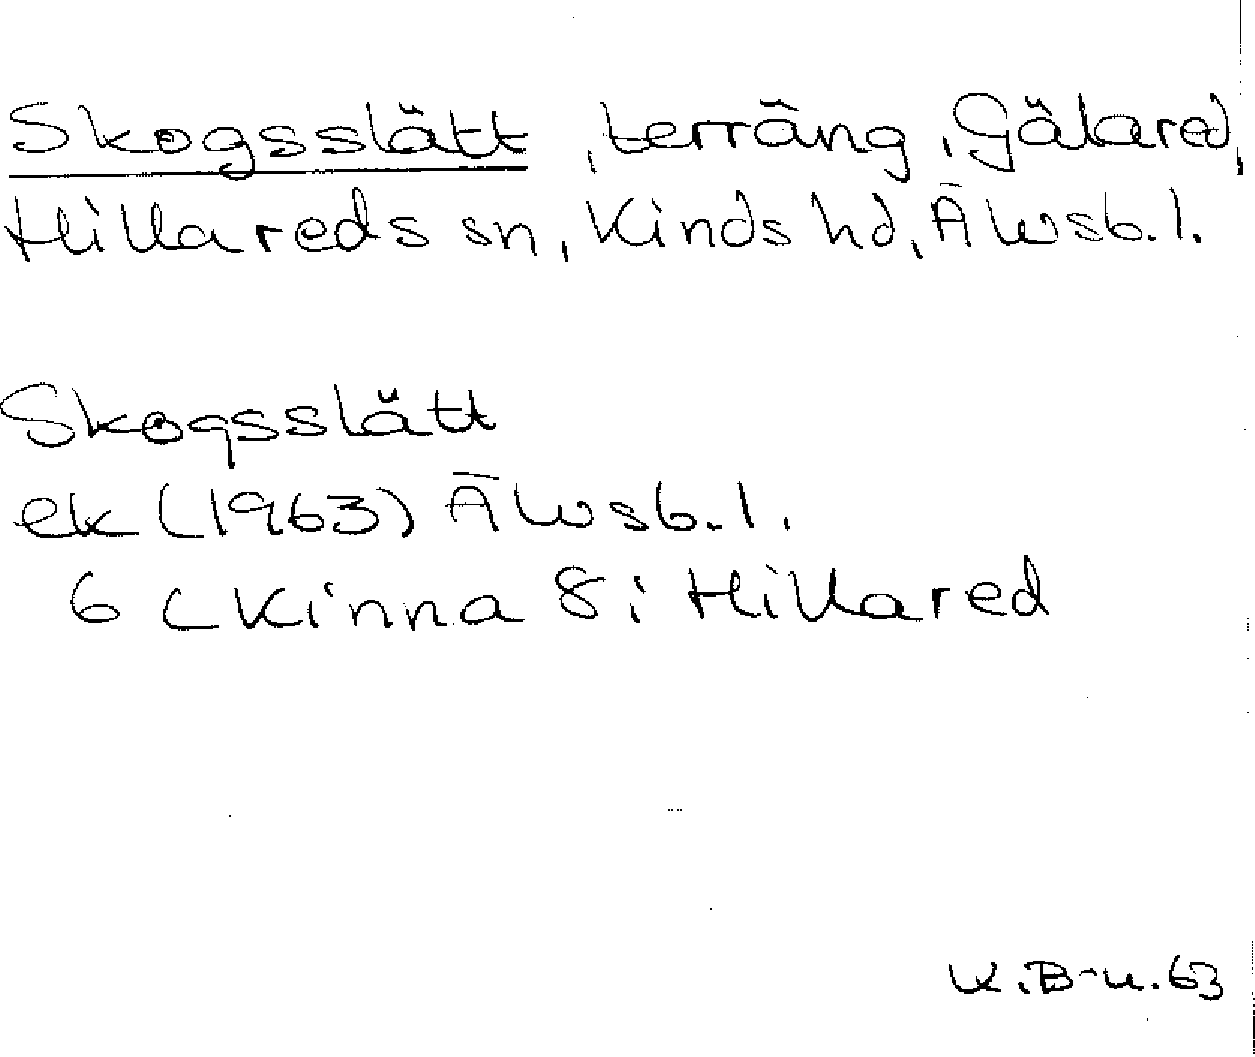 Skogsslätt, terräng, Gälared,
Hillareds sn, Kinds hd, Älvsb. l.
Skogsslätt
ek (1963) Älvsb. l.
6 C Kinna 8: Hillared
K.B-n. 63